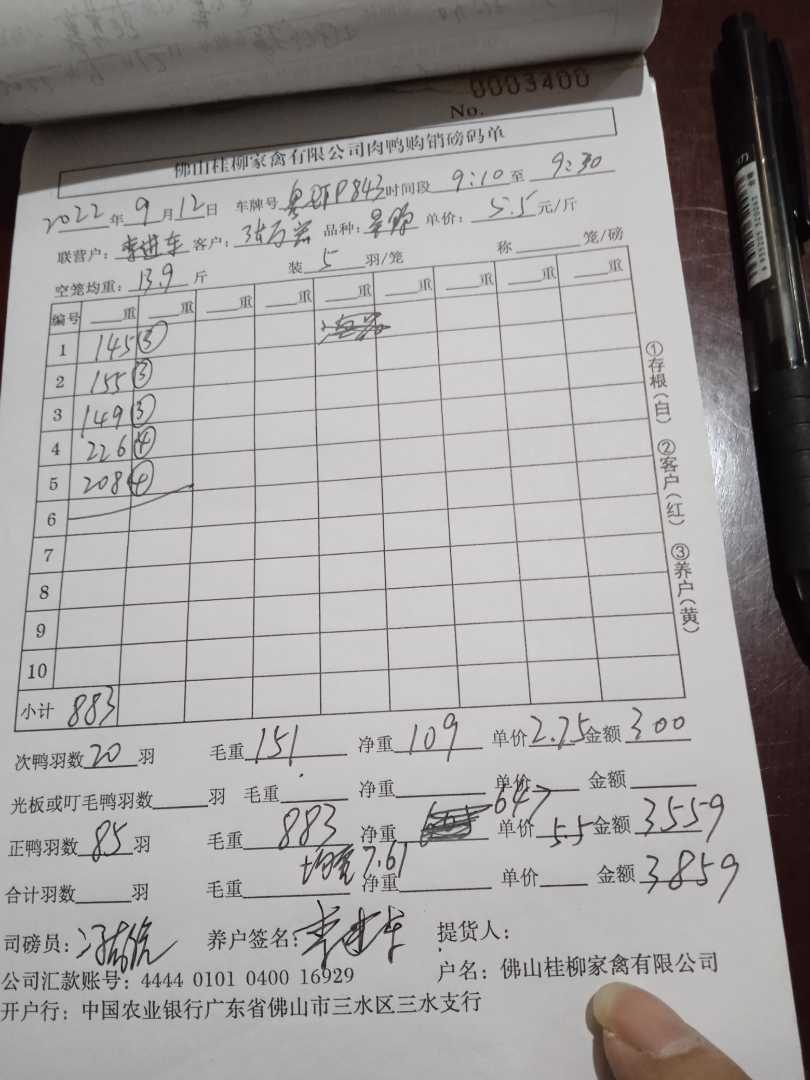 0003400
No.
佛山桂柳家禽有限公司肉鸭购销磅码单
2022年9月12日 车牌号 P843 时间段 9:10 至 9:30
联营户: 李进车 客户: 品种: 单价: 5.5 元/斤
空笼均重: 13.9 斤 装 5 羽/笼 称 笼/磅
编号 重 重 重 重 重 重 重 重 重
1 145 ③
2 155 ③
3 149 ③
4 226 ④
5 208 ④
6
7
8
9
10
小计 883
①存根(白) ②客户(红) ③养户(黄)
次鸭羽数 20 羽 毛重 151 净重 109 单价 2.75 金额 300
光板或叮毛鸭羽数 羽 毛重 净重 单价 金额
正鸭羽数 85 羽 毛重 883 净重 647 单价 5.5 金额 3559
均重 7.61
合计羽数 羽 毛重 净重 单价 金额 3859
司磅员: 养户签名: 李进车 提货人:
公司汇款账号: 4444 0101 0400 16929 户名: 佛山桂柳家禽有限公司
开户行: 中国农业银行广东省佛山市三水区三水支行